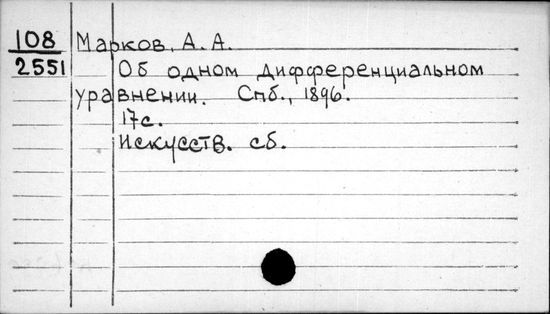 108 Марков, А. А.
2551 Об одном дифференциальном
уравнении. Спб., 1896.
17с.
Искусств. сб.